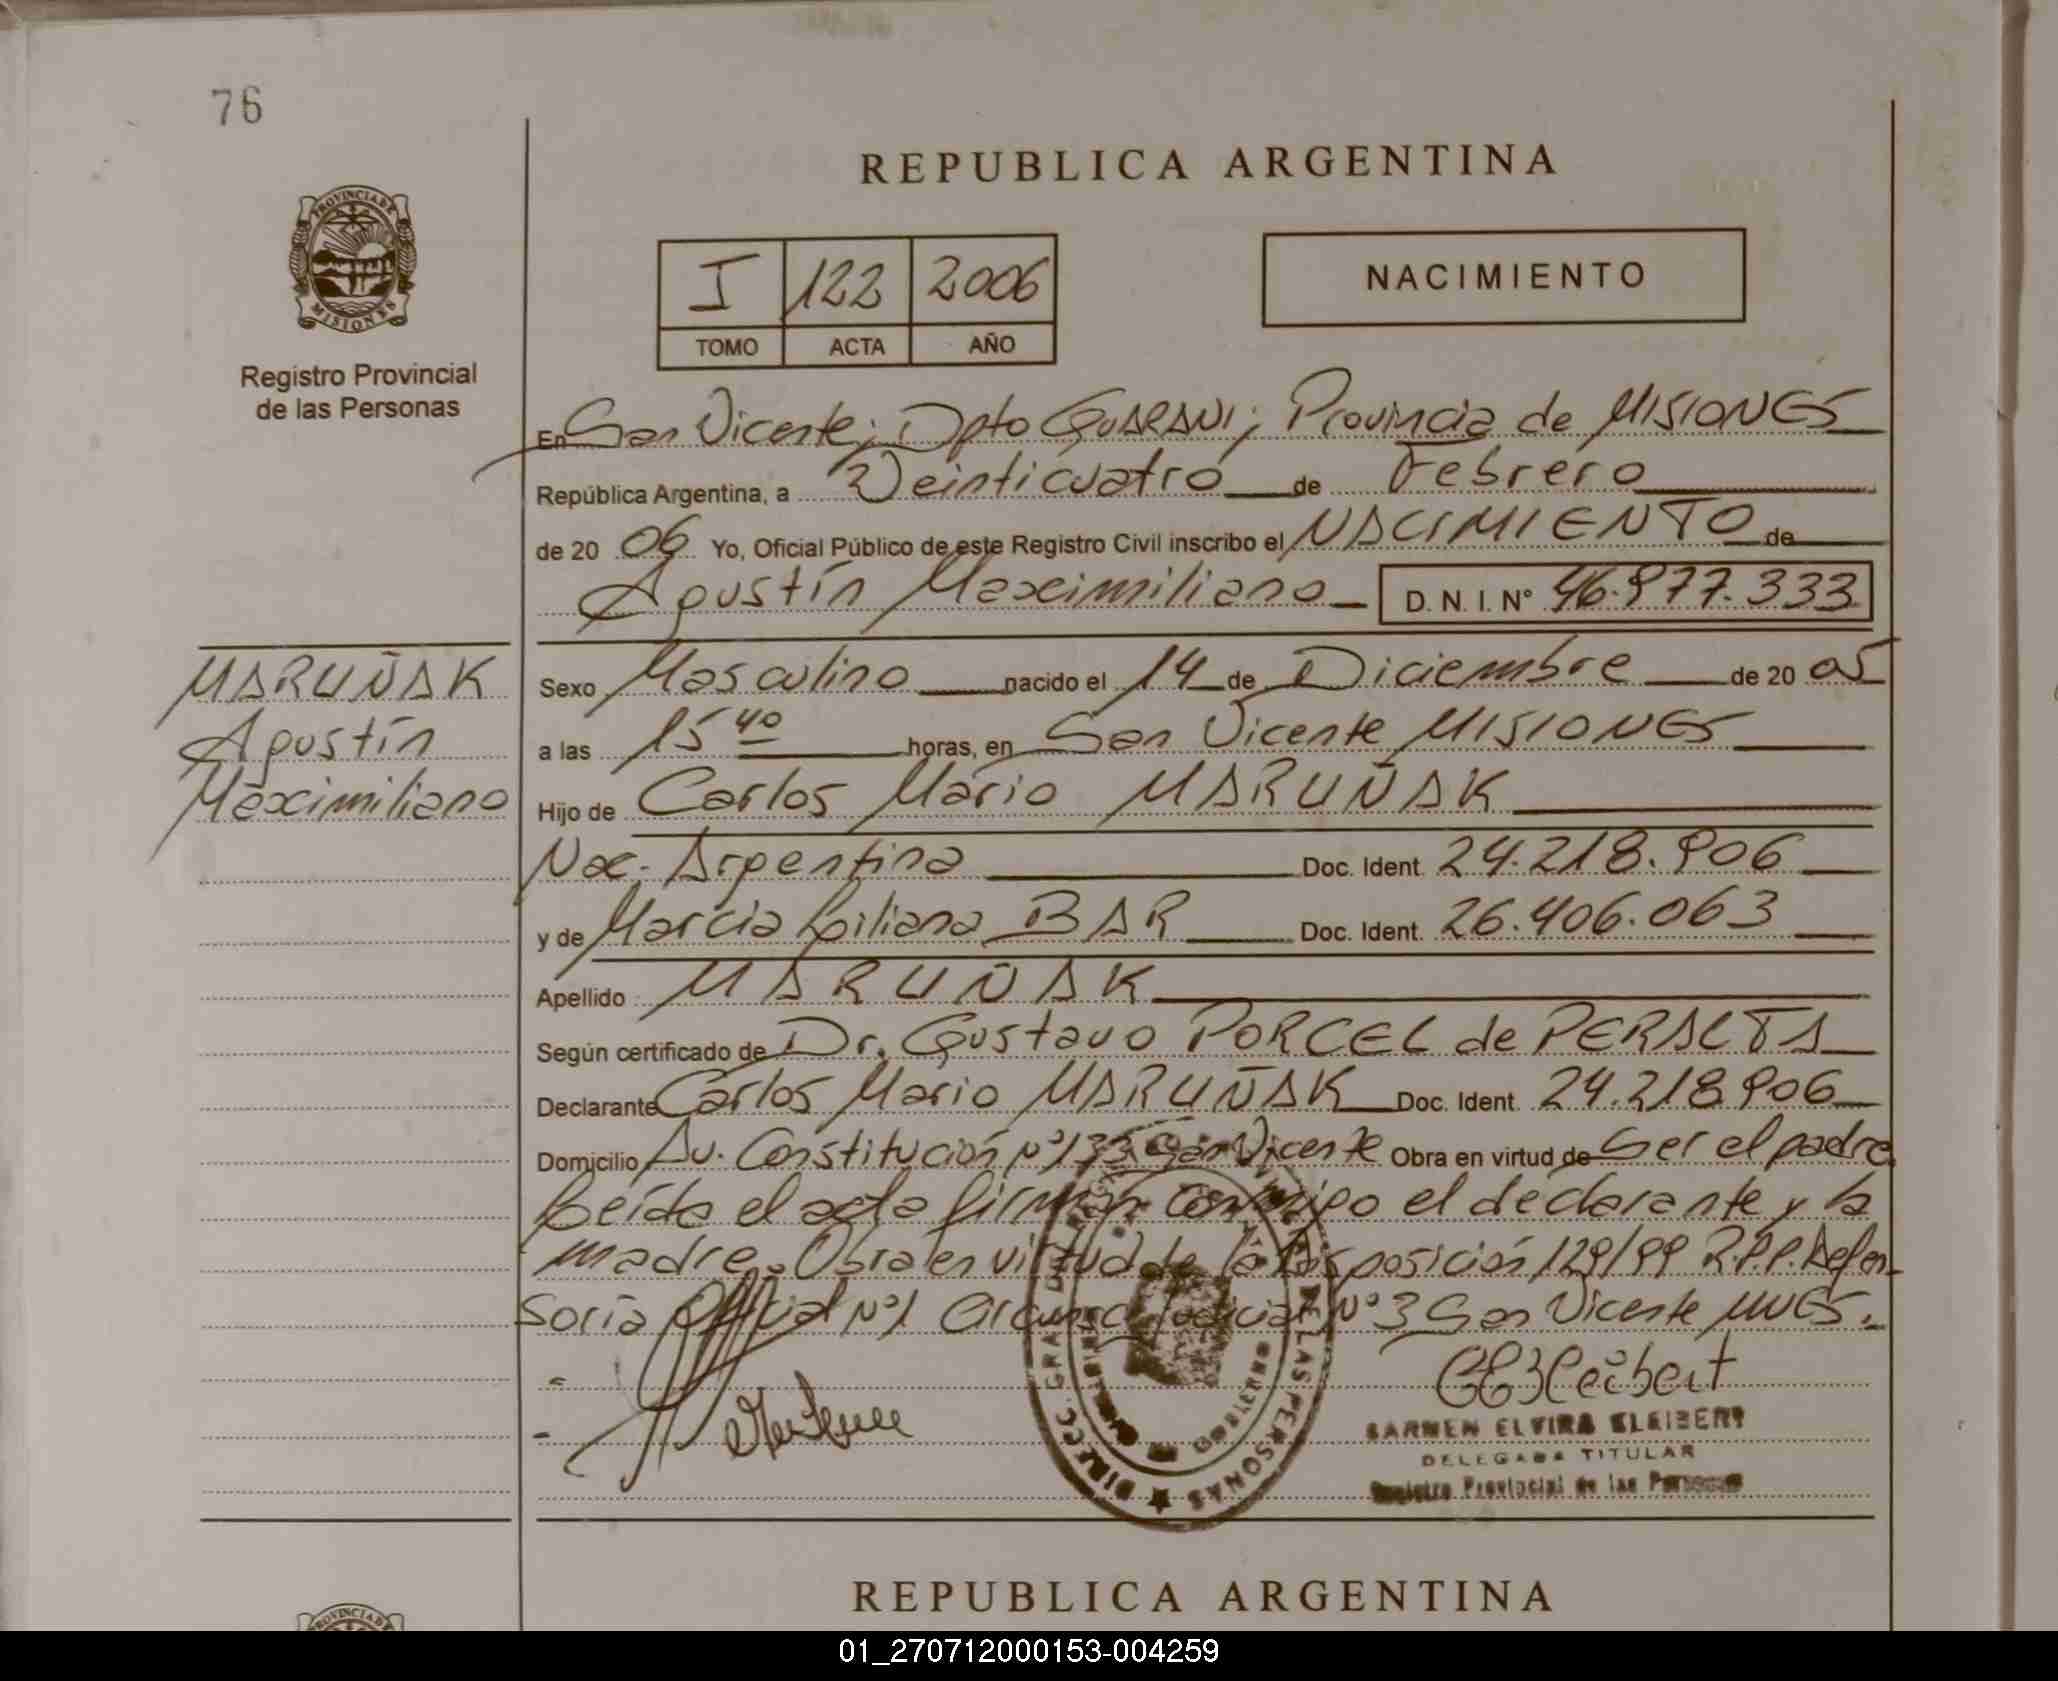 76
REPUBLICA ARGENTINA
PROVINCIA DE
MISIONES
Registro Provincial
de las Personas
I 122 2006
TOMO ACTA AÑO
NACIMIENTO
En San Vicente; Dpto GUARANI; Provincia de MISIONES
República Argentina, a Veinticuatro de Febrero
de 20 06 Yo, Oficial Público de este Registro Civil inscribo el NACIMIENTO de
Agustín Maximiliano D. N. I. N° 46.977.333
MARUÑAK
Agustín
Maximiliano
Sexo Masculino nacido el 14 de Diciembre de 20 05
a las 15 40 horas, en San Vicente MISIONES
Hijo de Carlos Mario MARUÑAK
Nac. Argentina Doc. Ident. 24.218.906
y de Marcia Liliana BAR Doc. Ident. 26.406.063
Apellido MARUÑAK
Según certificado de Dr. Gustavo PORCEL de PERALTA
Declarante Carlos Mario MARUÑAK Doc. Ident. 24.218.906
Domicilio Av. Constitución N° 133 San Vicente Obra en virtud de Ser el padre
Leída el acta firman conmigo el declarante y la
madre. Obra en virtud de la Disposición 129/99 R.P.P. Defen
soría Oficial N°1 Circunsc. Judicial N°3 San Vicente MNES.
CARMEN ELVIRA KLEIBERT
DELEGADA TITULAR
Registro Provincial de las Personas
DIRECC. GRAL. DE LAS PERSONAS
REPUBLICA ARGENTINA
PROVINCIA DE
01_270712000153-004259